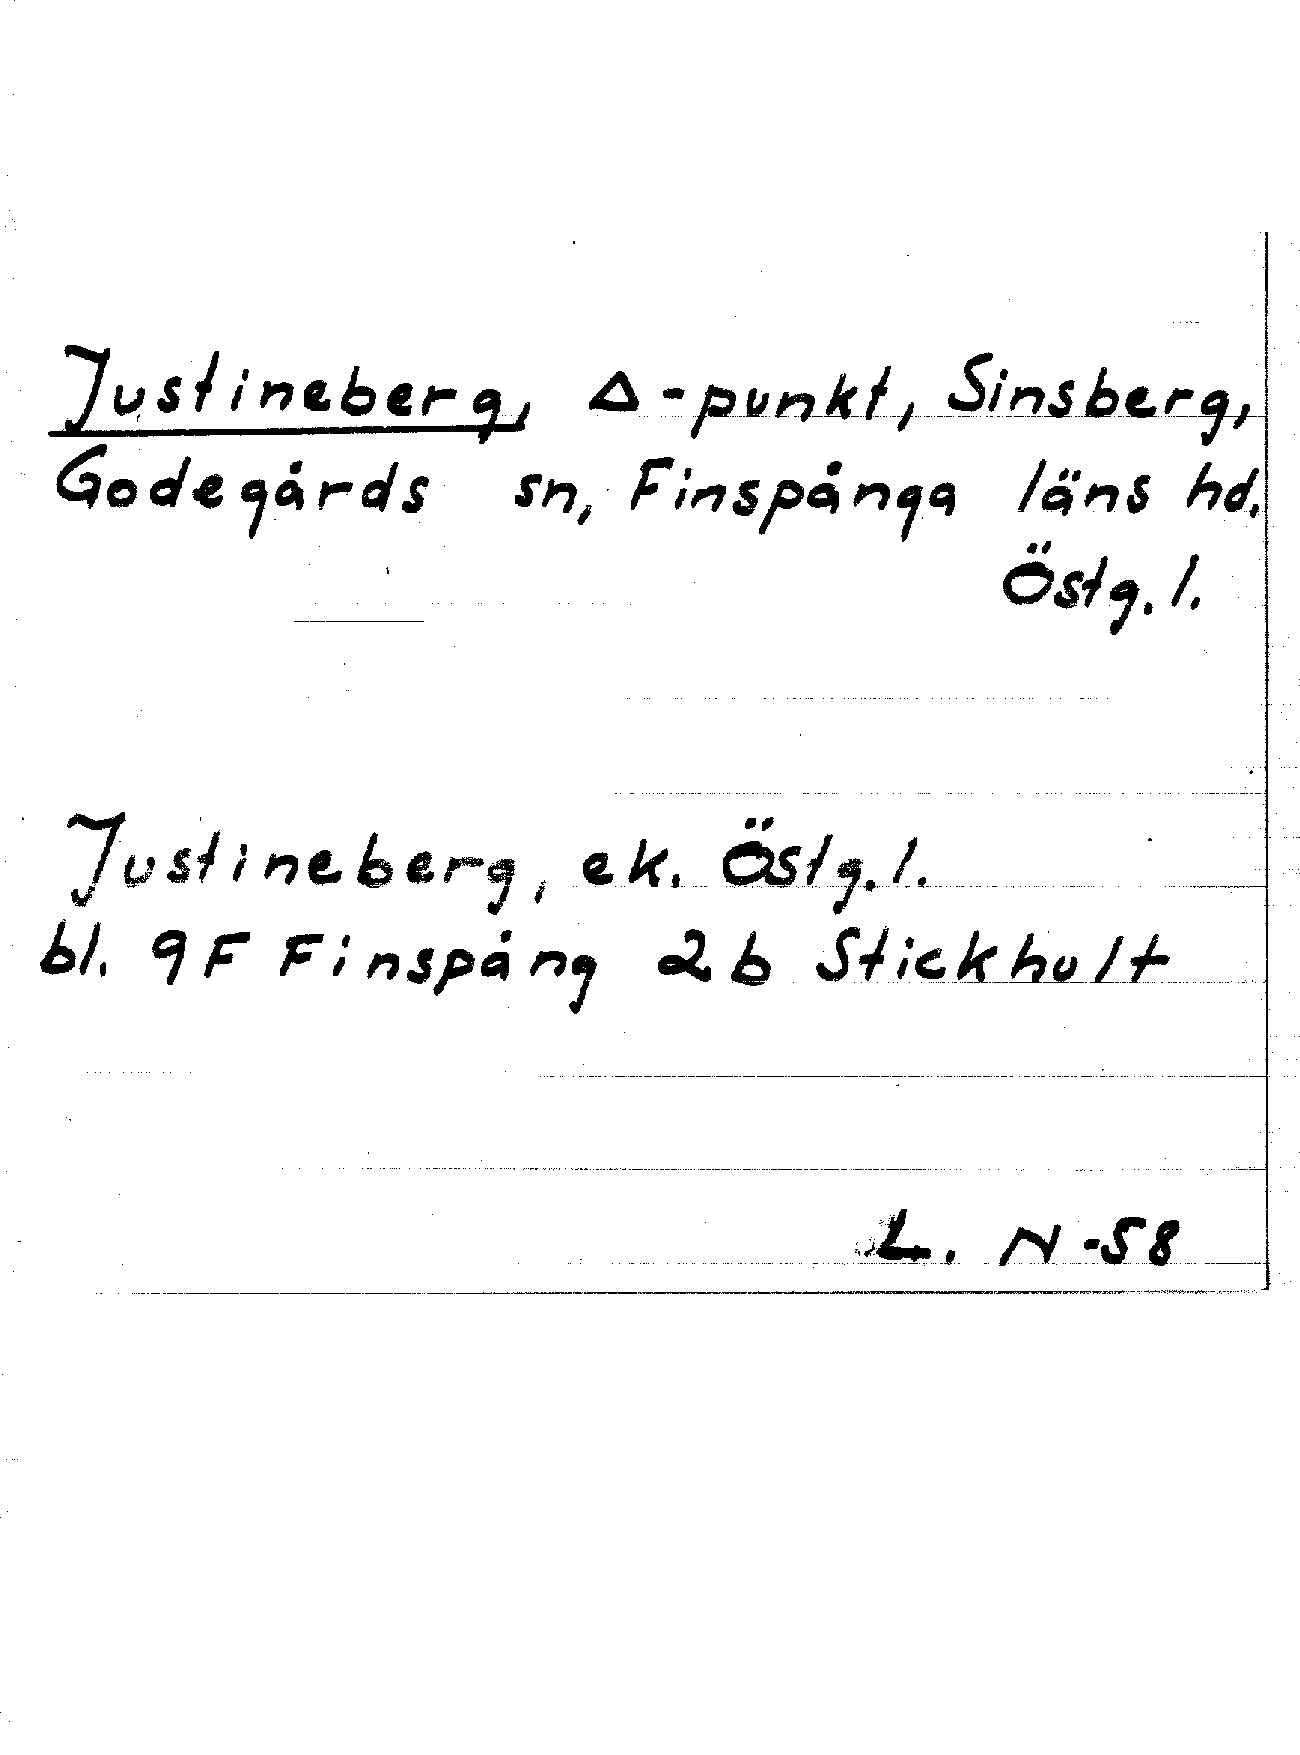 Justineberg, Δ-punkt, Sinsberg,
Godegårds sn, Finspånga läns hd.
Östg. l.
Justineberg, ek. Östg. l.
bl. 9F Finspång 2b Stickhult
L. N-58